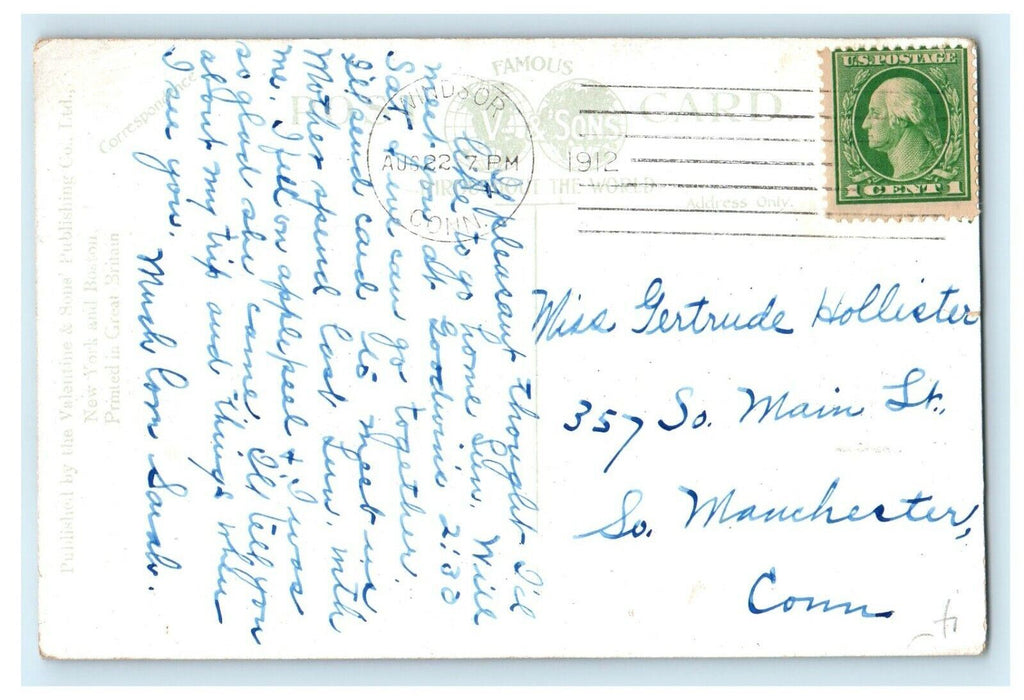 Correspondence
FAMOUS
POST CARD
V & SONS
THROUGHOUT THE WORLD
Address Only.
WINDSOR
AUG 22 7 PM
1912
CONN.
U.S. POSTAGE
1 CENT 1
If pleasant thought I'd
like to go home Sun. Will
meet you at Goodwins 2:30
Sat. + we can go together.
I'll send card to meet us
Mother spend last Sun. with
me. I fell on applepeel + I was
so glad she came. I'll tell you
about my trip and things when
I see you.
Much love Sarah.
Miss Gertrude Hollister
357 So. Main St.,
So. Manchester,
Conn.
Published by the Valentine & Sons' Publishing Co., Ltd.,
New York and Boston.
Printed in Great Britain